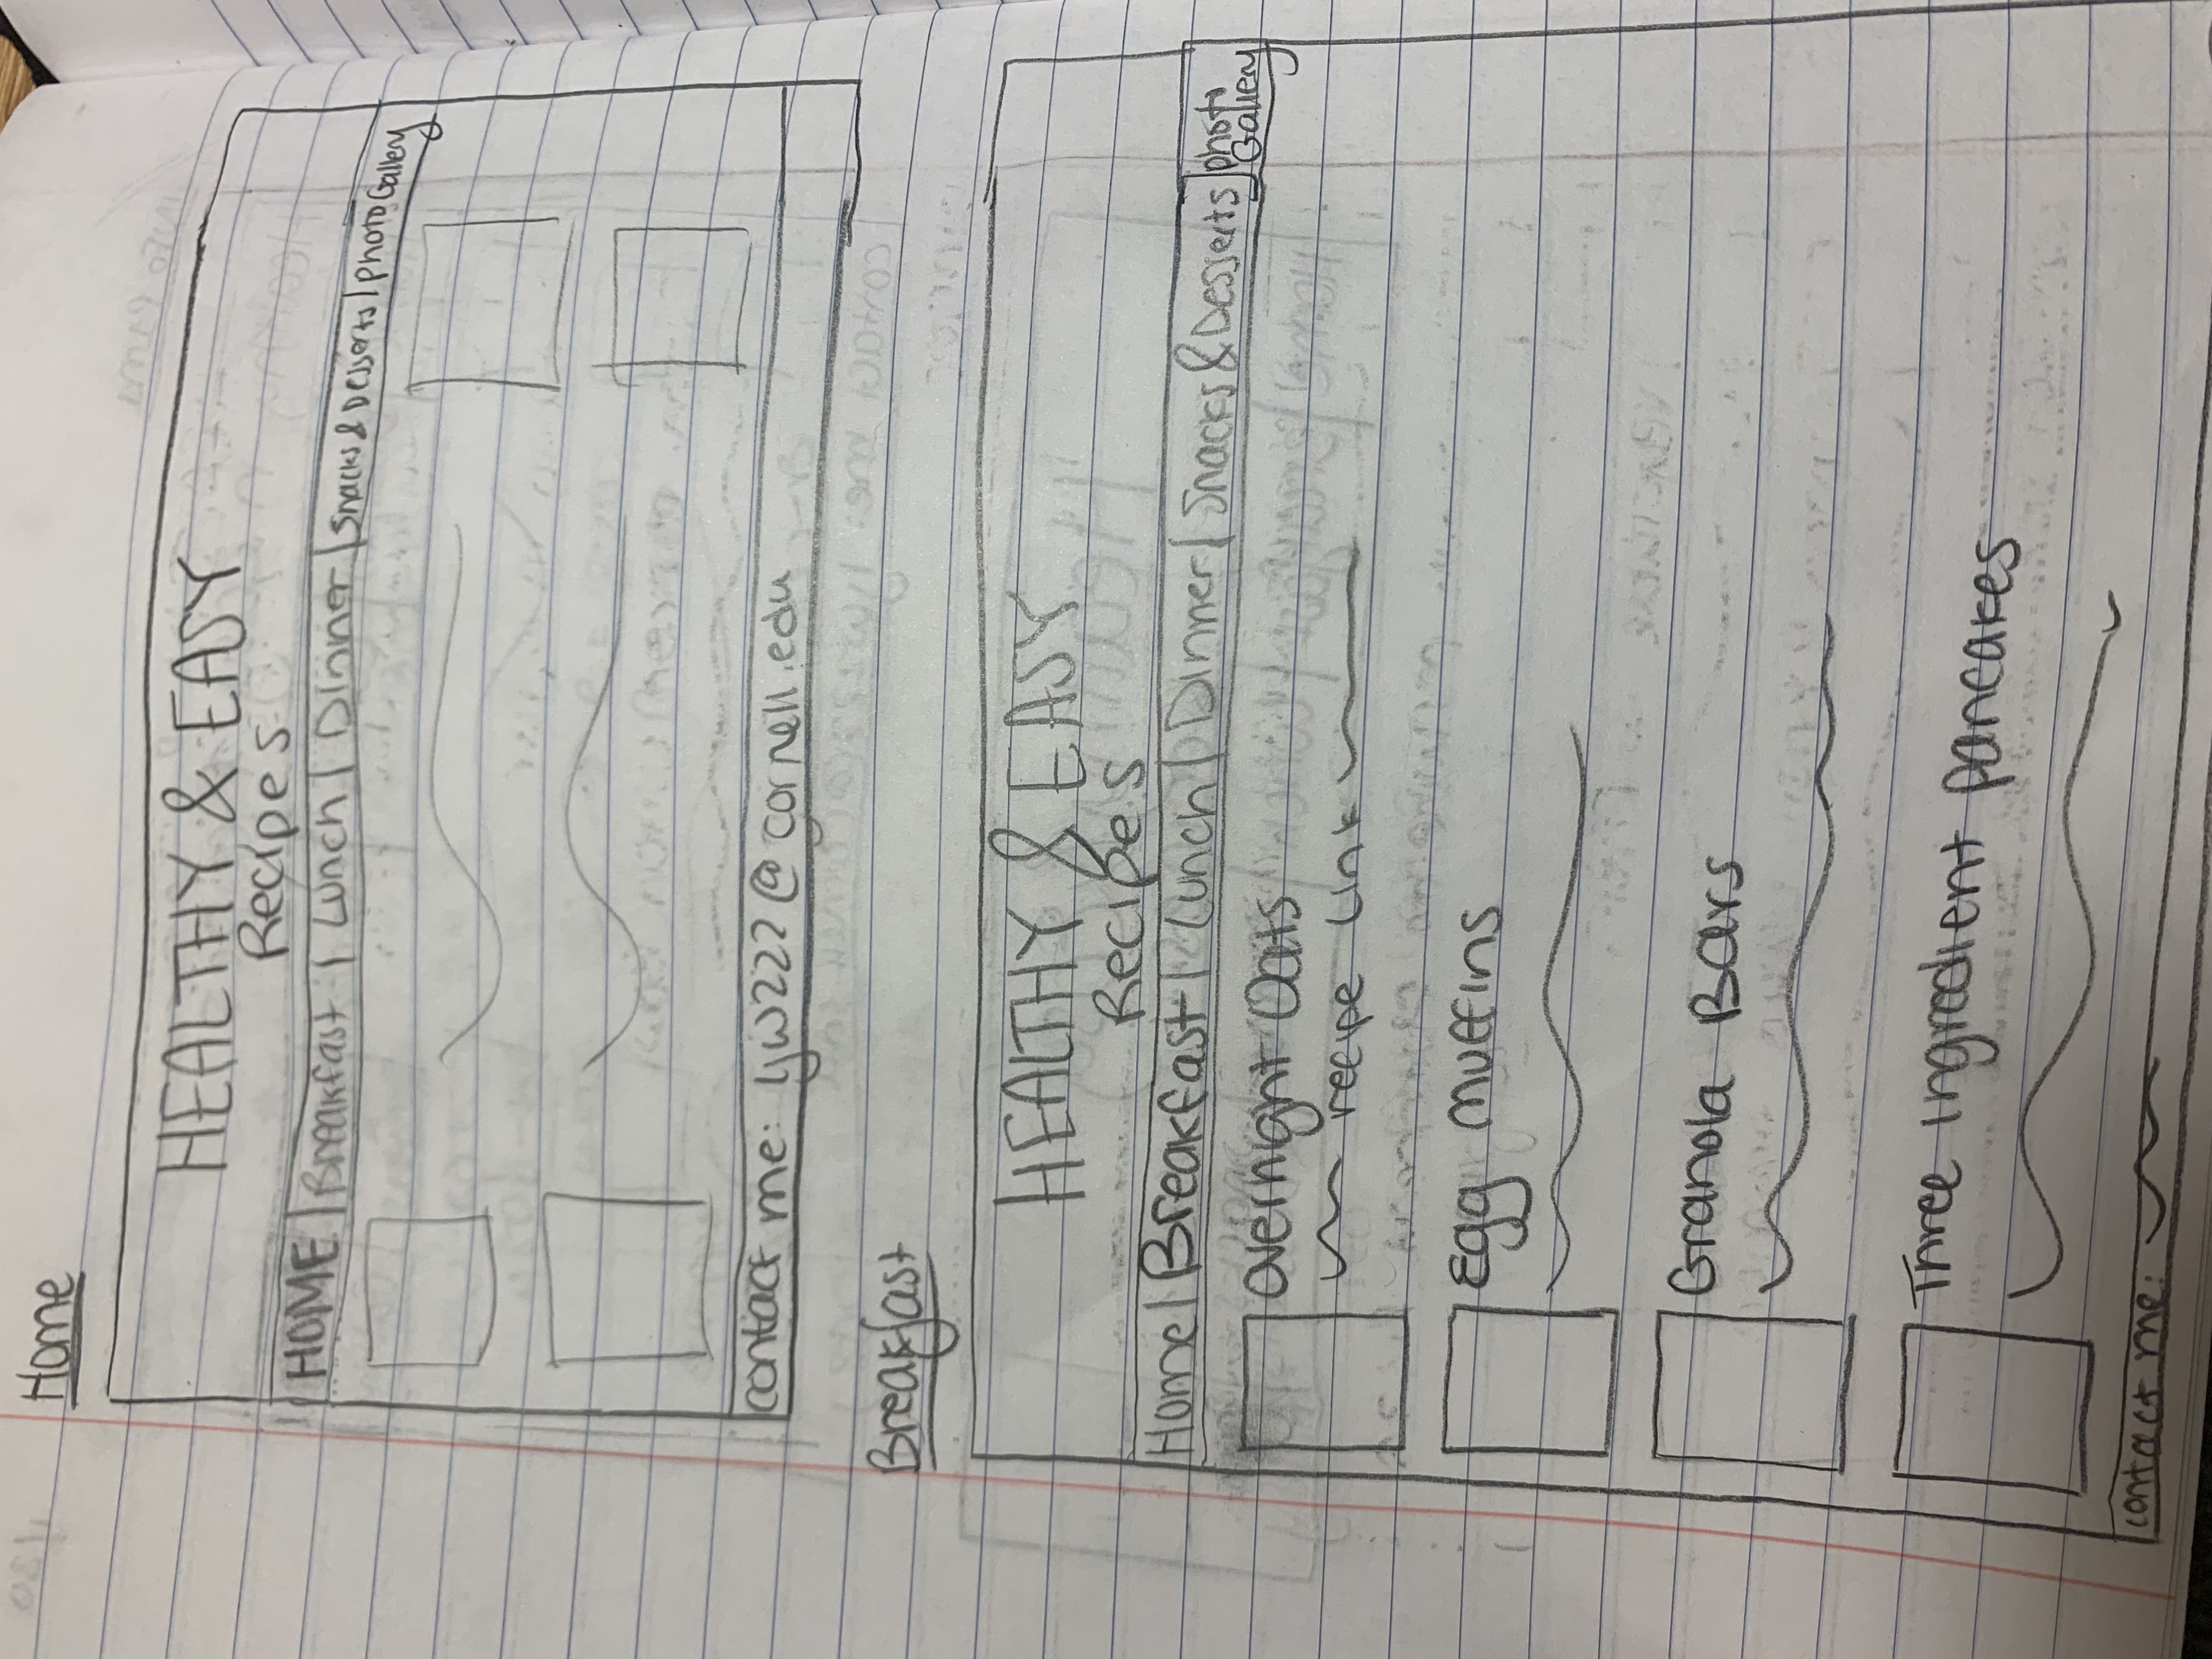 Home
HEALTHY & EASY
Recipes
HOME | Breakfast | Lunch | Dinner | Snacks & Desserts | photo Gallery
contact me: yw222@cornell.edu
Breakfast
HEALTHY & EASY
Recipes
Home | Breakfast | Lunch | Dinner | Snacks & Desserts | photo Gallery
Overnight Oats
recipe link
Egg muffins
Granola Bars
Three ingredient pancakes
contact me: